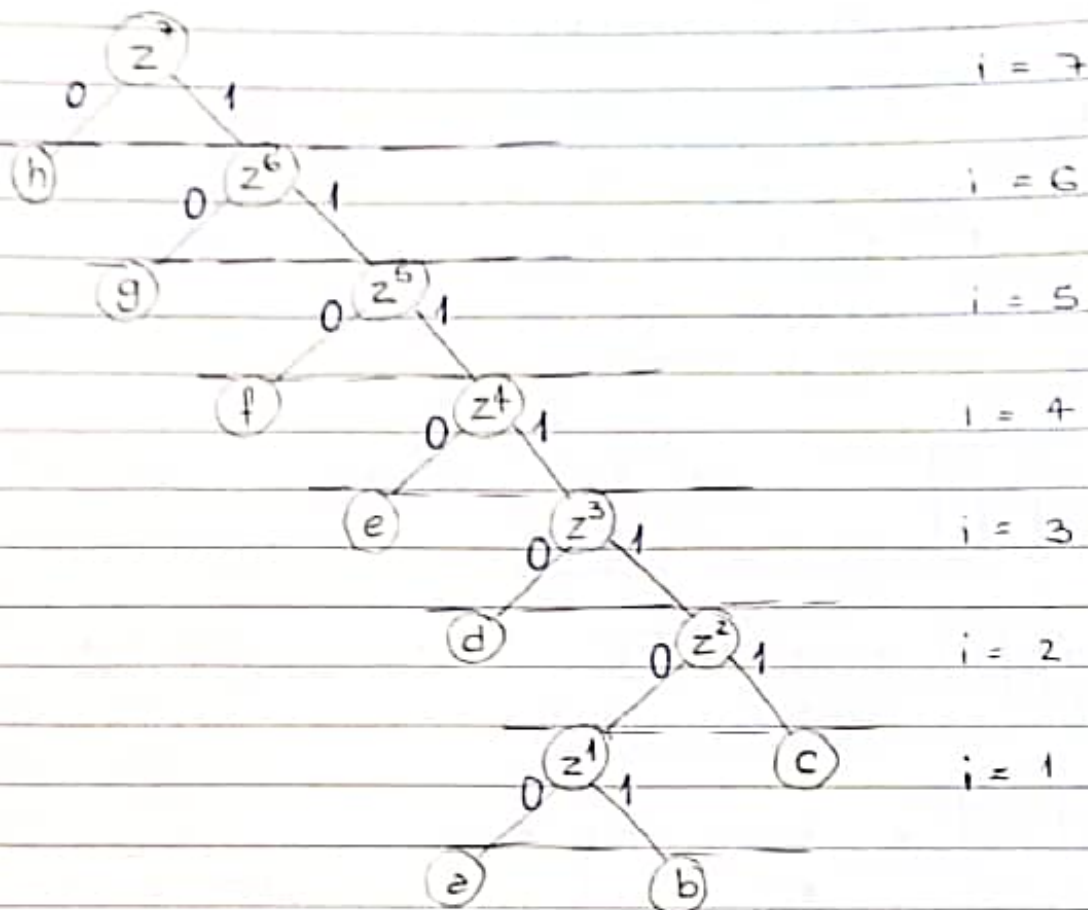 z⁷ i = 7
0 1
h z⁶ i = 6
0 1
g z⁵ i = 5
0 1
f z⁴ i = 4
0 1
e z³ i = 3
0 1
d z² i = 2
0 1
z¹ c i = 1
0 1
a b